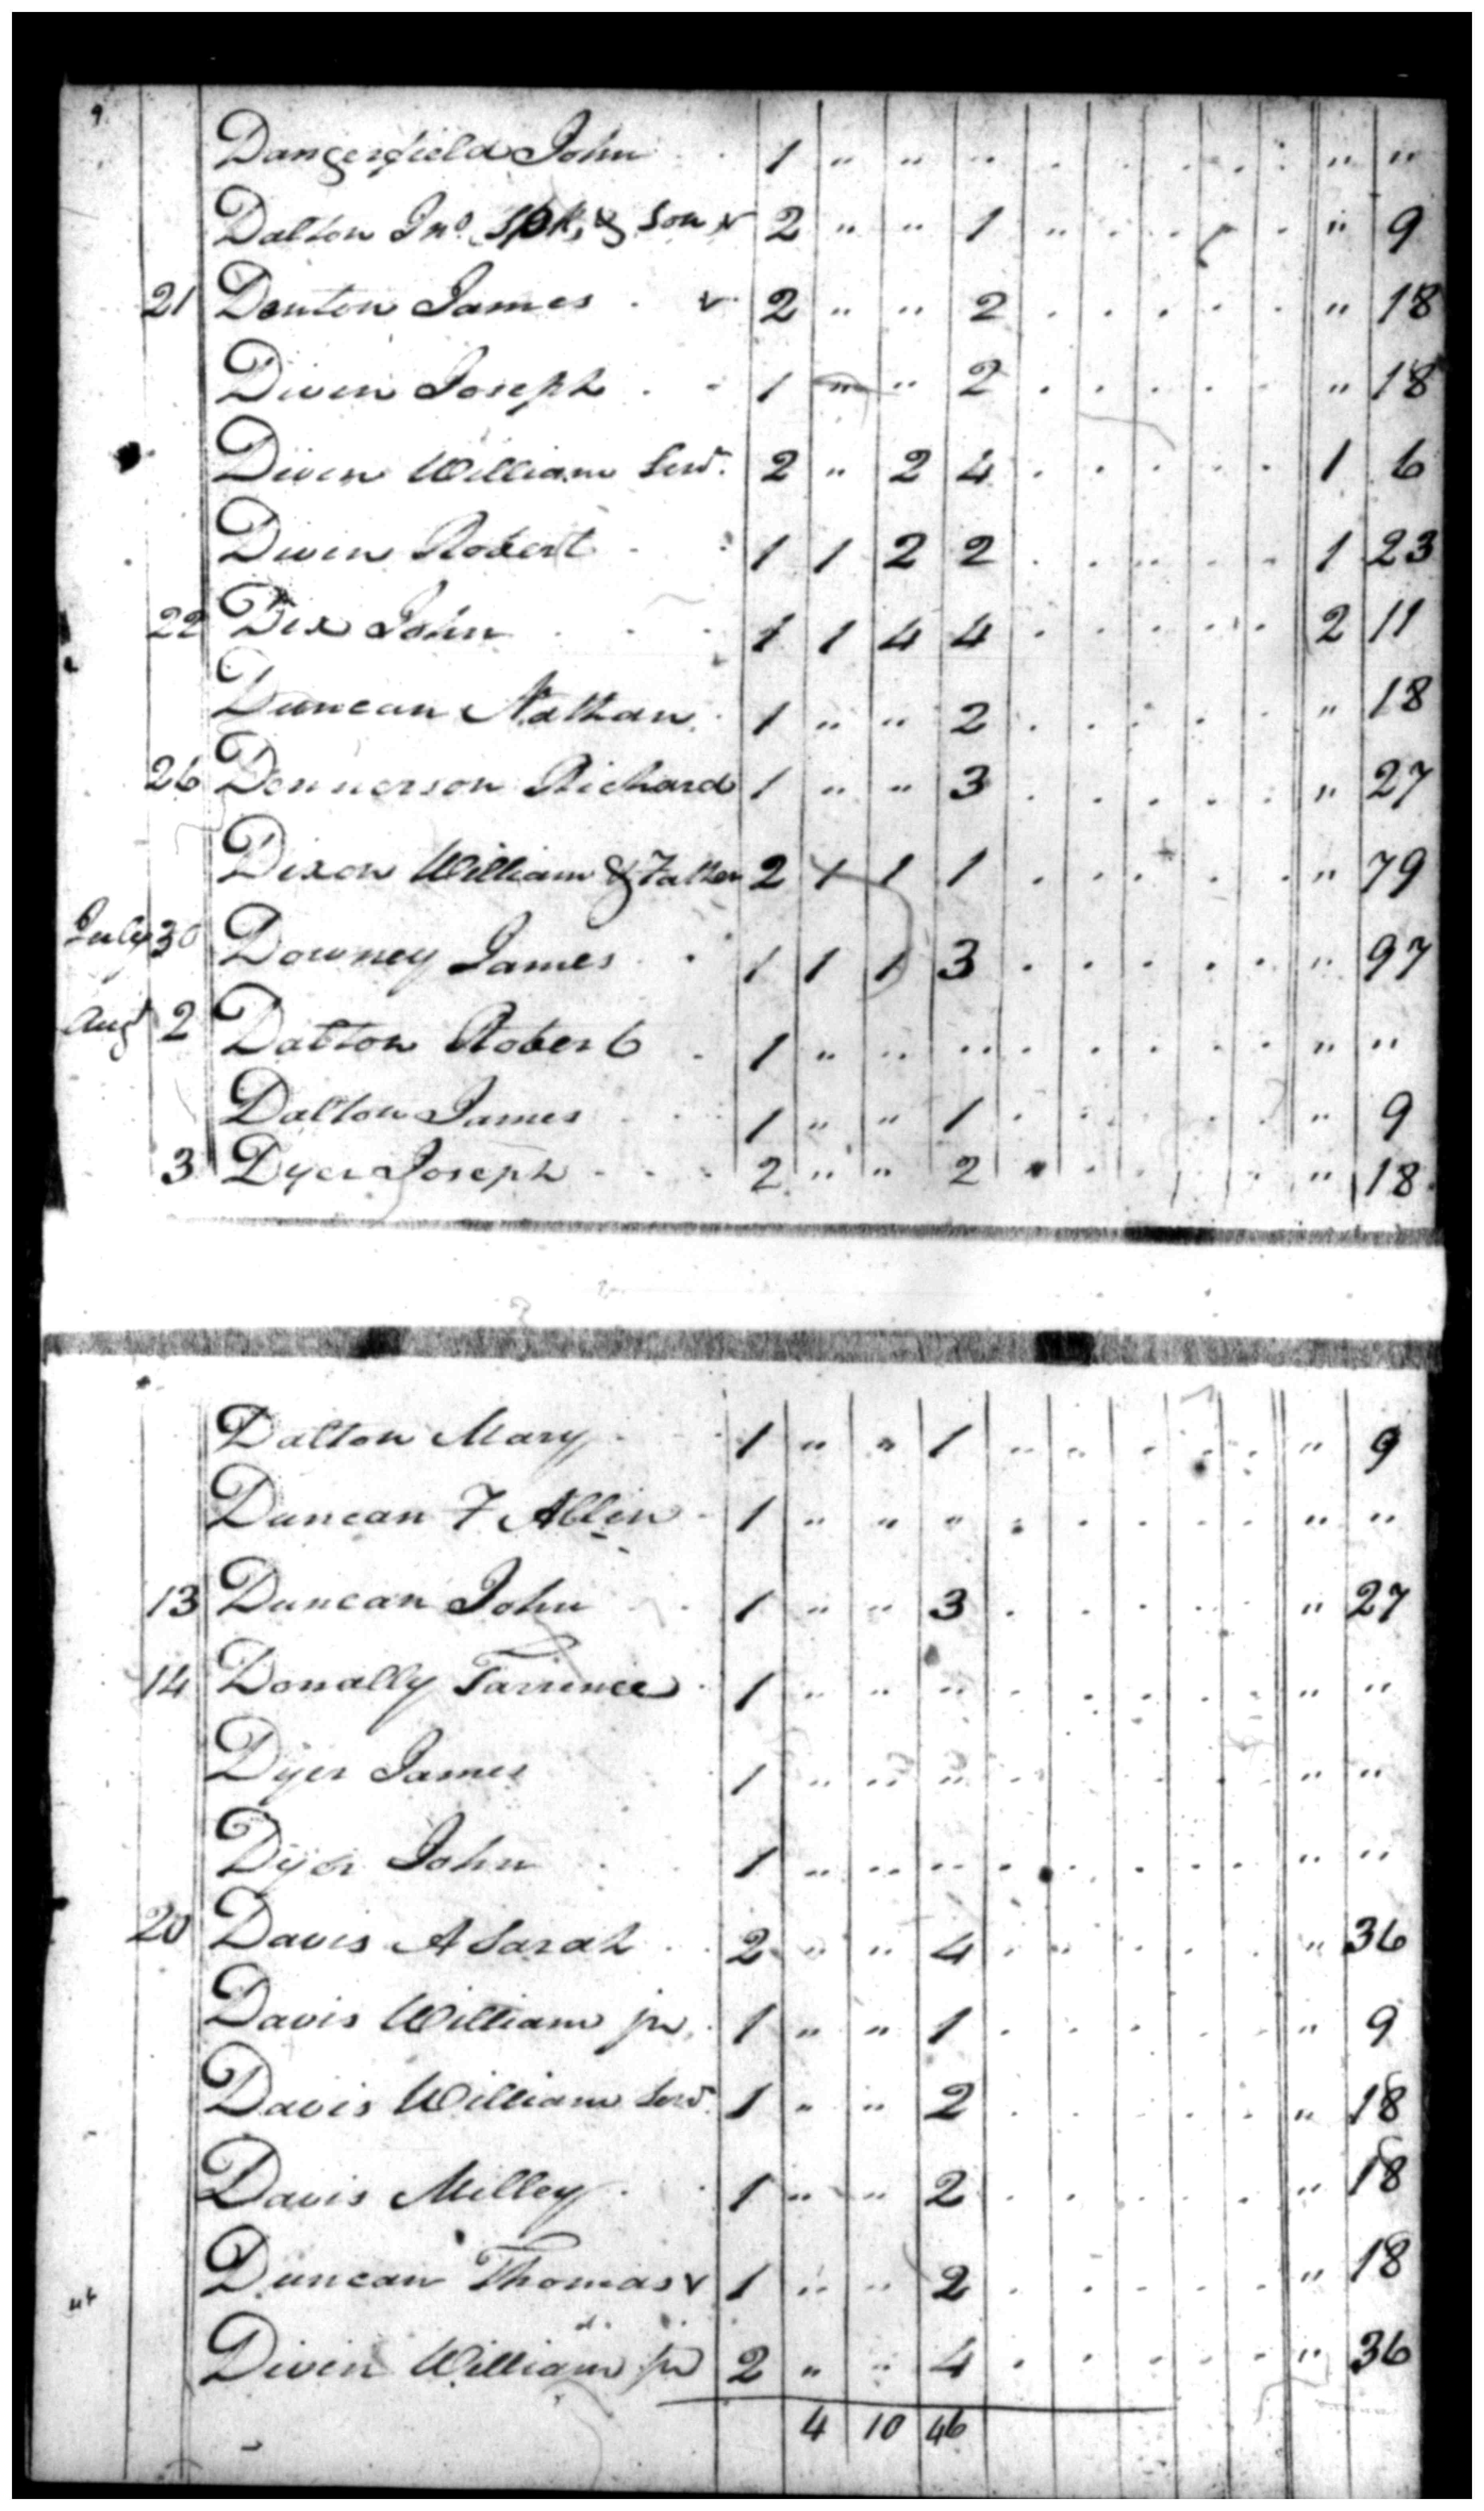 Dangerfield John 1 " " " " "
Dalton Jno. Spk, & Son v 2 " " 1 " " 9
21 Denton James v 2 " " 2 " 18
Diven Joseph 1 " " 2 " 18
Diven William Senr. 2 " 2 4 1 6
Diven Robert 1 1 2 2 1 23
22 Dix John 1 1 4 4 2 11
Duncan Nathan 1 " " 2 " 18
26 Dennerson Richard 1 " " 3 " 27
Dixon William & Father 2 1 1 1 " 79
July 30 Downey James 1 1 1 3 " 97
Augt 2 Dalton Robert 1 " " " " "
Dalton James 1 " " 1 " 9
3 Dyer Joseph 2 " " 2 " 18
Dalton Mary 1 " " 1 " 9
Duncan F Allin 1 " " " " "
13 Duncan John 1 " " 3 " 27
14 Donally Tarrence 1 " " " " "
Dyer James 1 " " " " "
Dyer John 1 " " " " "
20 Davis A Sarah 2 " " 4 " 36
Davis William jr. 1 " " 1 " 9
Davis William Senr. 1 " " 2 " 18
Davis Milley 1 " " 2 " 18
Duncan Thomas v 1 " " 2 " 18
Divin William jr 2 " " 4 " 36
4 10 46